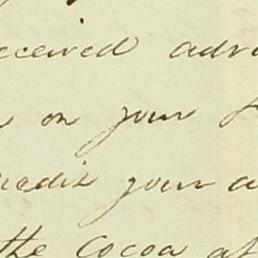 eceived adv
on your
credit your a
the Cocoa at